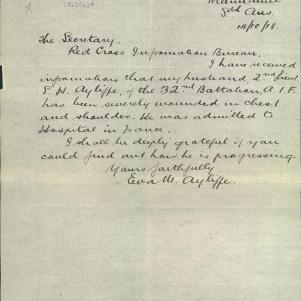 Sth Aus.
14/10/18.
The Secretary.
Red Cross Information Bureau.
I have received
information that my husband, 2nd Lieut
S. H. Ayliffe, of the 32nd Battalion, A.I.F.
has been severely wounded in chest
and shoulder. He was admitted to
Hospital in France.
I shall be deeply grateful if you
could find out how he is progressing.
Yours faithfully
Eva M. Ayliffe.